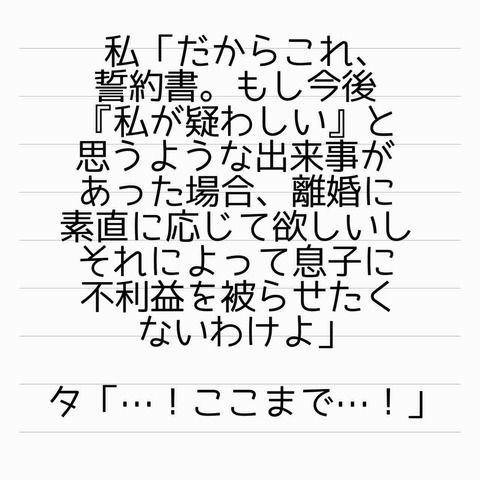 私「だからこれ、
誓約書。もし今後
『私が疑わしい』と
思うような出来事が
あった場合、離婚に
素直に応じて欲しいし
それによって息子に
不利益を被らせたく
ないわけよ」
タ「…！ここまで…！」